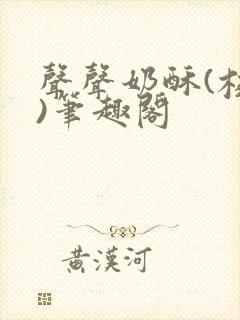 聲聲奶酥(校
)筆趣閣
黃漢河